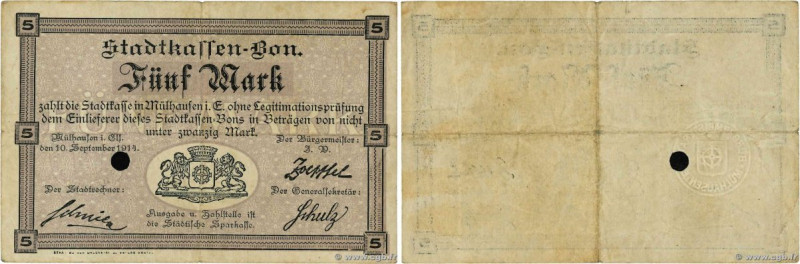 5 5
Stadtkassen-Bon.
Fünf Mark
zahlt die Stadtkasse in Mülhausen i. E. ohne Legitimationsprüfung
dem Einlieferer dieses Stadtkassen-Bons in Beträgen von nicht
unter zwanzig Mark.
Mülhausen i. Els.
den 10. September 1914.
Der Bürgermeister:
I. V.
Zoepffel
Der Stadtrechner:
Der Generalsekretär:
Schulz
Ausgabe u. Zahlstelle ist
die Städtische Sparkasse.
5 5
© www.cgb.fr
© www.cgb.fr